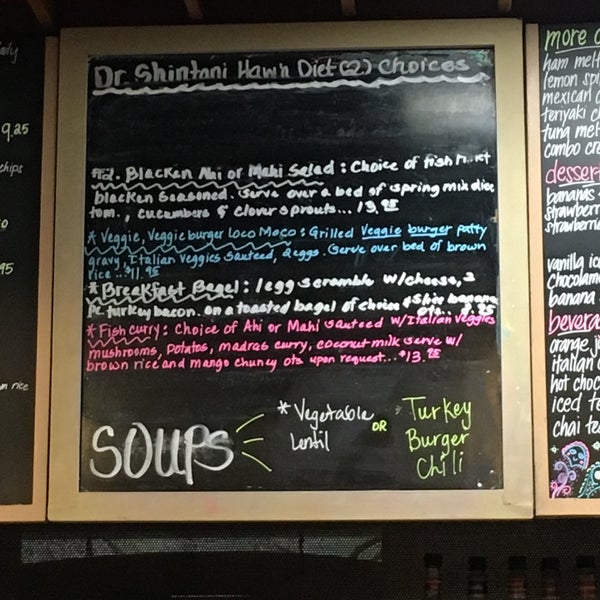 Dr. Shintani Haw'n Diet (2) Choices
Blacken Ahi or Mahi Salad: Choice of fish
blacken seasoned. Serve over a bed of spring mix dice
tom., cucumbers & clover sprouts... 13.95
* Veggie, Veggie burger Loco Moco: Grilled Veggie burger patty
gravy, Italian veggies sauteed, 2 eggs. Serve over bed of brown
rice... $11.95
* Breakfast Bagel: 1 egg scramble w/cheese, 2
pc turkey bacon. on a toasted bagel of choice
* Fish curry: Choice of Ahi or Mahi sauteed w/Italian veggies
mushrooms, potatos, madras curry, coconut milk serve w/
brown rice and mango chuney ots upon request... $13.95
SOUPS
* Vegetable
Lentil
OR
Turkey
Burger
Chili
9.25
95
rice
more
ham mel
lemon spi
mexican c
teriyaki c
tuna mel
combo cre
dessert
bananas
strawberr
strawberri
vanilla ice
chocolate
banana
bevera
orange ji
italian
hot choc
iced te
chai tea